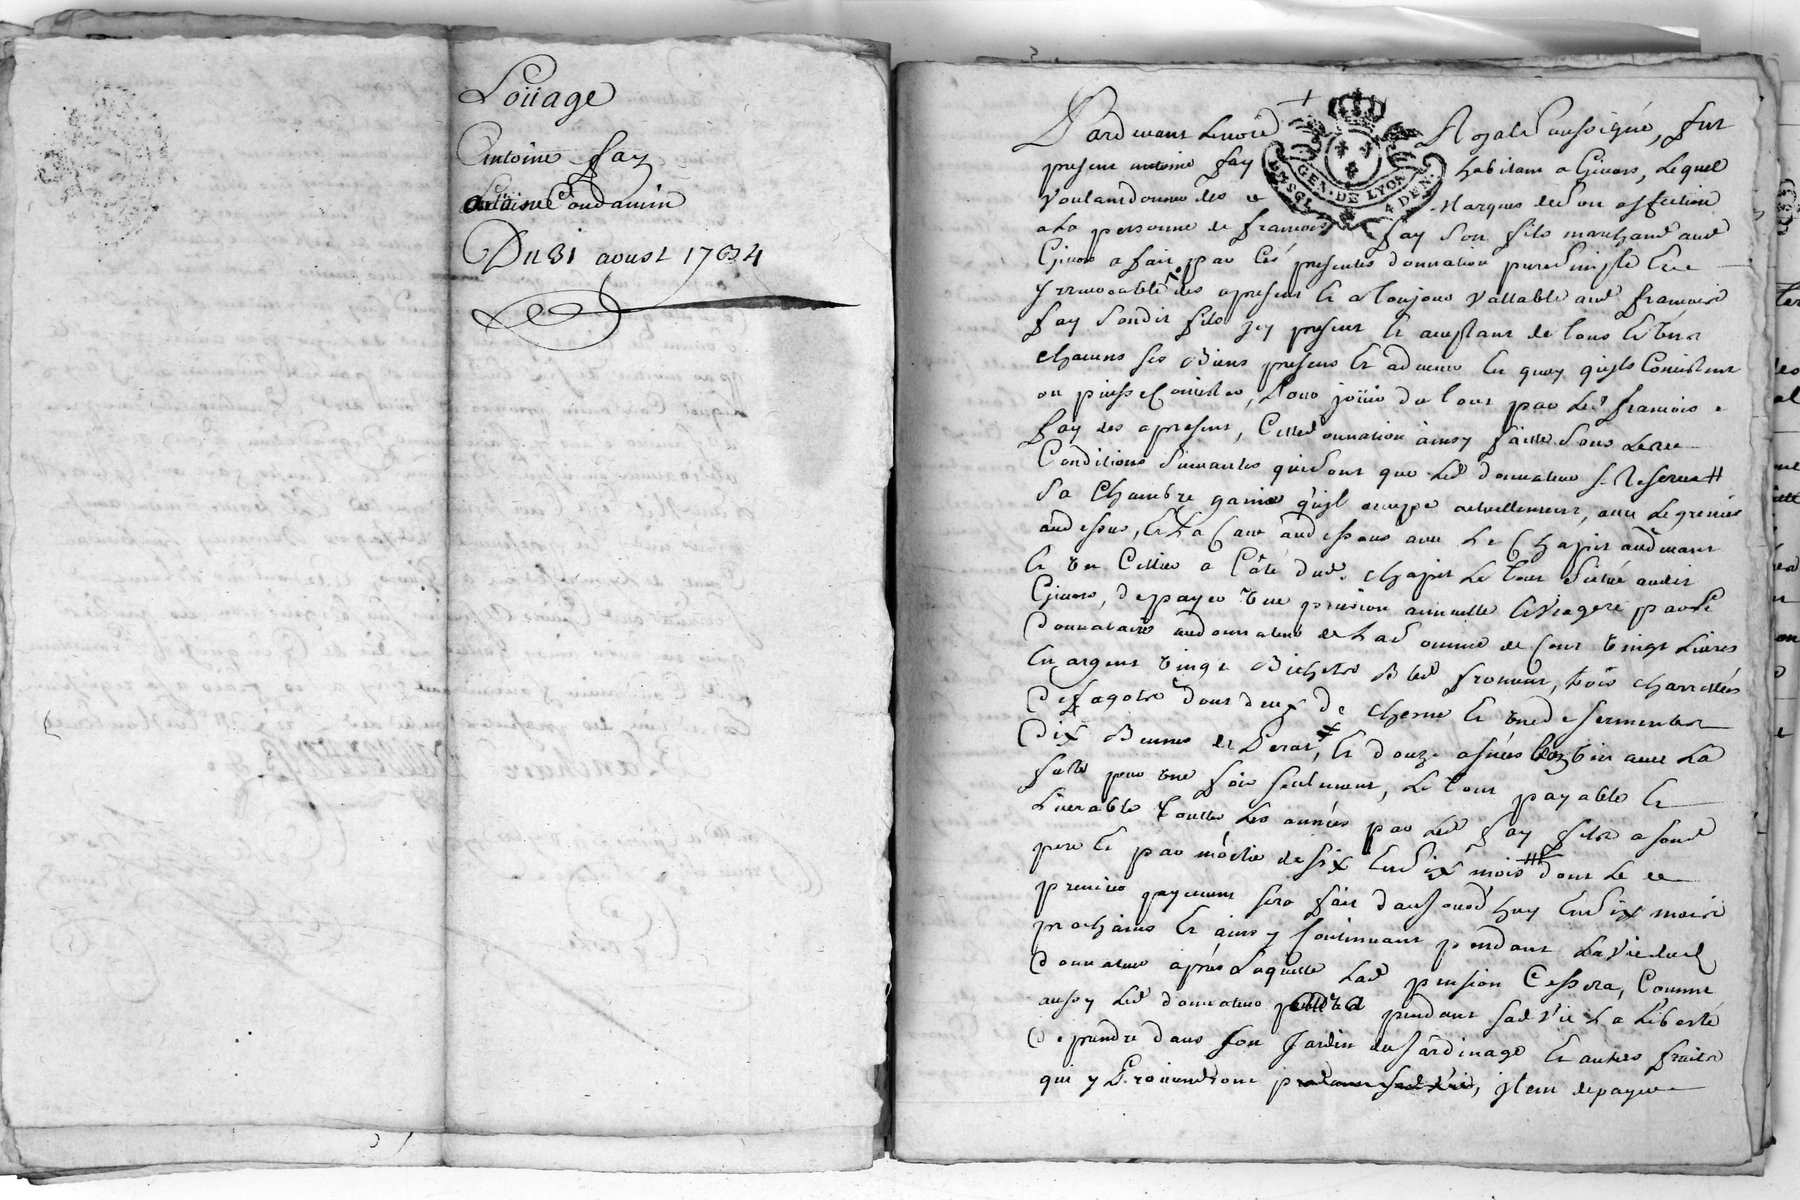 Loüage
Antoine fay
Antoine Condamin
Du 31 aoust 1734
Pardevant le no.re Royal soussigné, fut
GEN. DE LYON
4 DEN.
present antoine fay habitant a Givors, Lequel
Voulant donner des Marques de son affection
a la personne de francois fay son fils marchand aud
Givors a fait par cés presentes donnation pure Simple Et
yrrevocable des apresent Et a toujours vallable aud francois
fay sondit fils jcy present Et aceptant de tous Et Uns
chacuns ses Biens presens Et advenir En quoy qujls Consistent
ou puisse Consister, Pour joüir du tout par led francois
fay des apresent, Cette donnation ainsy faitte Sous les
Conditions Suivantes qui Sont que Led donnateur se Reserve #
Sa Chambre garnie qujl occupe actuellement, avec Le grenier
audessus, Et La Cave audessous avec Le Chapit audevant
Et Un Cellier a Côté dud. chapit Le tout Scitué audit
Givors, de payer Une pension annuelle Et Viagere par le
donnataire au donnateur de La Somme de Cent Vingt Livres
En argent Vingt Bichets Bled froment, trois charretées
de fagots dont deux de chesne Et Une de serments
Dix Bennes de Peras, Et douze asnées bon Vin avec La
futte pour Une fois seulement, Le tout payable Et
Livrable toutes Les années par Led fay fils a sond
pere Et par moitié de six En Six mois # dont Le
premier payement sera fait daujourdhuy En Six mois
prochains Et ainsy Continuant pendant La Vie dud
donnateur aprés Laquelle Lad pension Cessera, Comme
aussy Led donnateur pendant sad Vie La Liberté
de prendre dans son Jardin du Jardinage Et autres fruits
qui y Proviendront, jtem de payer